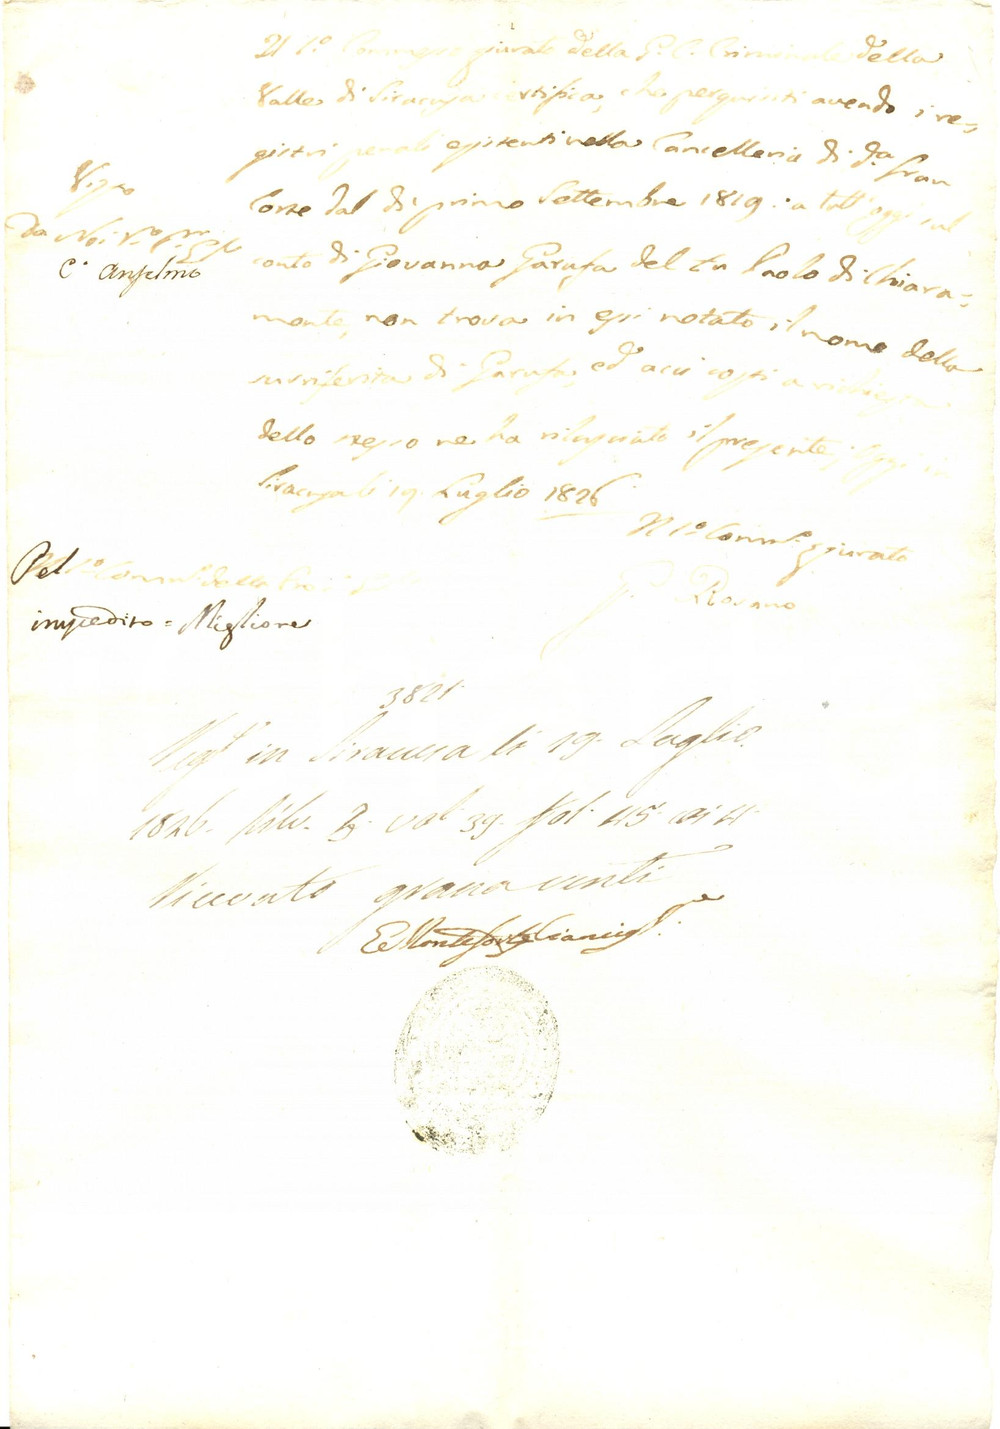 Il 1.o Commesso giurato della G. C. Criminale della
Valle di Siracusa certifica, che perquisiti avendo i re=
gistri penali esistenti nella Cancelleria di d.a Gran
Corte dal dì primo Settembre 1819. a tutt'oggi sul
conto di Giovanna Garufa del fu Paolo di Chiara=
monte, non trova in essi notato il nome della
surriferita di Garufa, ed acciò costi a richiesta
dello stesso ne ha rilasciato il presente, oggi in
Siracusa li 19. Luglio 1826
Il 1.o Comm.o giurato
Rosano
Visto
Da Noi
C. Anselmo
Pel 1.o Comm.o della
impedito = Migliore
3821.
Reg.to in Siracusa li 19. Luglio
1826. Lib. 3. vol. 39. fol. 45. 4.
Ricevuto grana venti